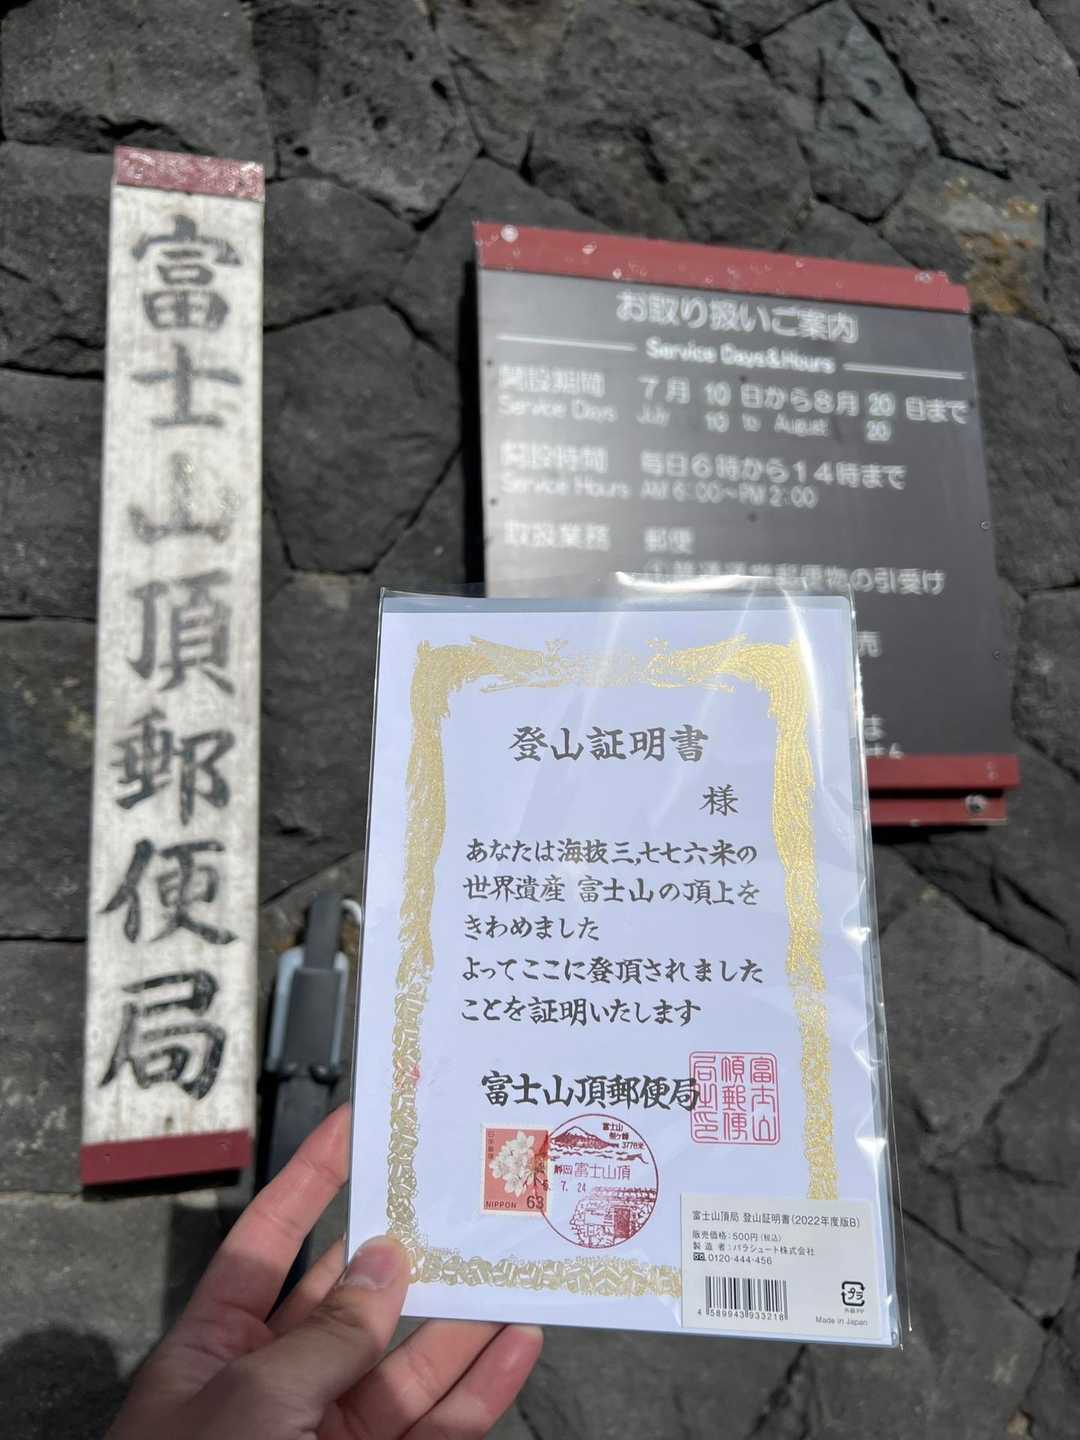 富士山頂郵便局
お取り扱いご案内
Service Days&Hours
開設期間 7月 10 日から8月 20 日まで
Service Days July 10 to August 20
開設時間 毎日6時から14時まで
Service Hours AM 6:00~PM 2:00
取扱業務 郵便
①普通通常郵便物の引受け
売
は
せん
登山証明書
様
あなたは海抜三,七七六米の
世界遺産 富士山の頂上を
きわめました
よってここに登頂されました
ことを証明いたします
富士山頂郵便局
富士山頂郵便局之印
日本郵便
NIPPON 63
富士山
剣ヶ峰
3776米
静岡 富士山頂
7. 24
富士山頂局 登山証明書(2022年度版B)
販売価格:500円(税込)
製造者:パラシュート株式会社
0120-444-456
4 589943 933218
プラ
外袋:PP
Made in Japan